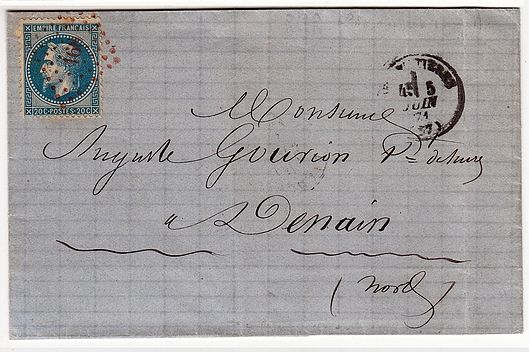 EMPIRE FRANÇAIS
20 C POSTES 20 C
5
JUIN
71
(37)
Monsieur
Auguste Gourion
à Denain
(Nord)